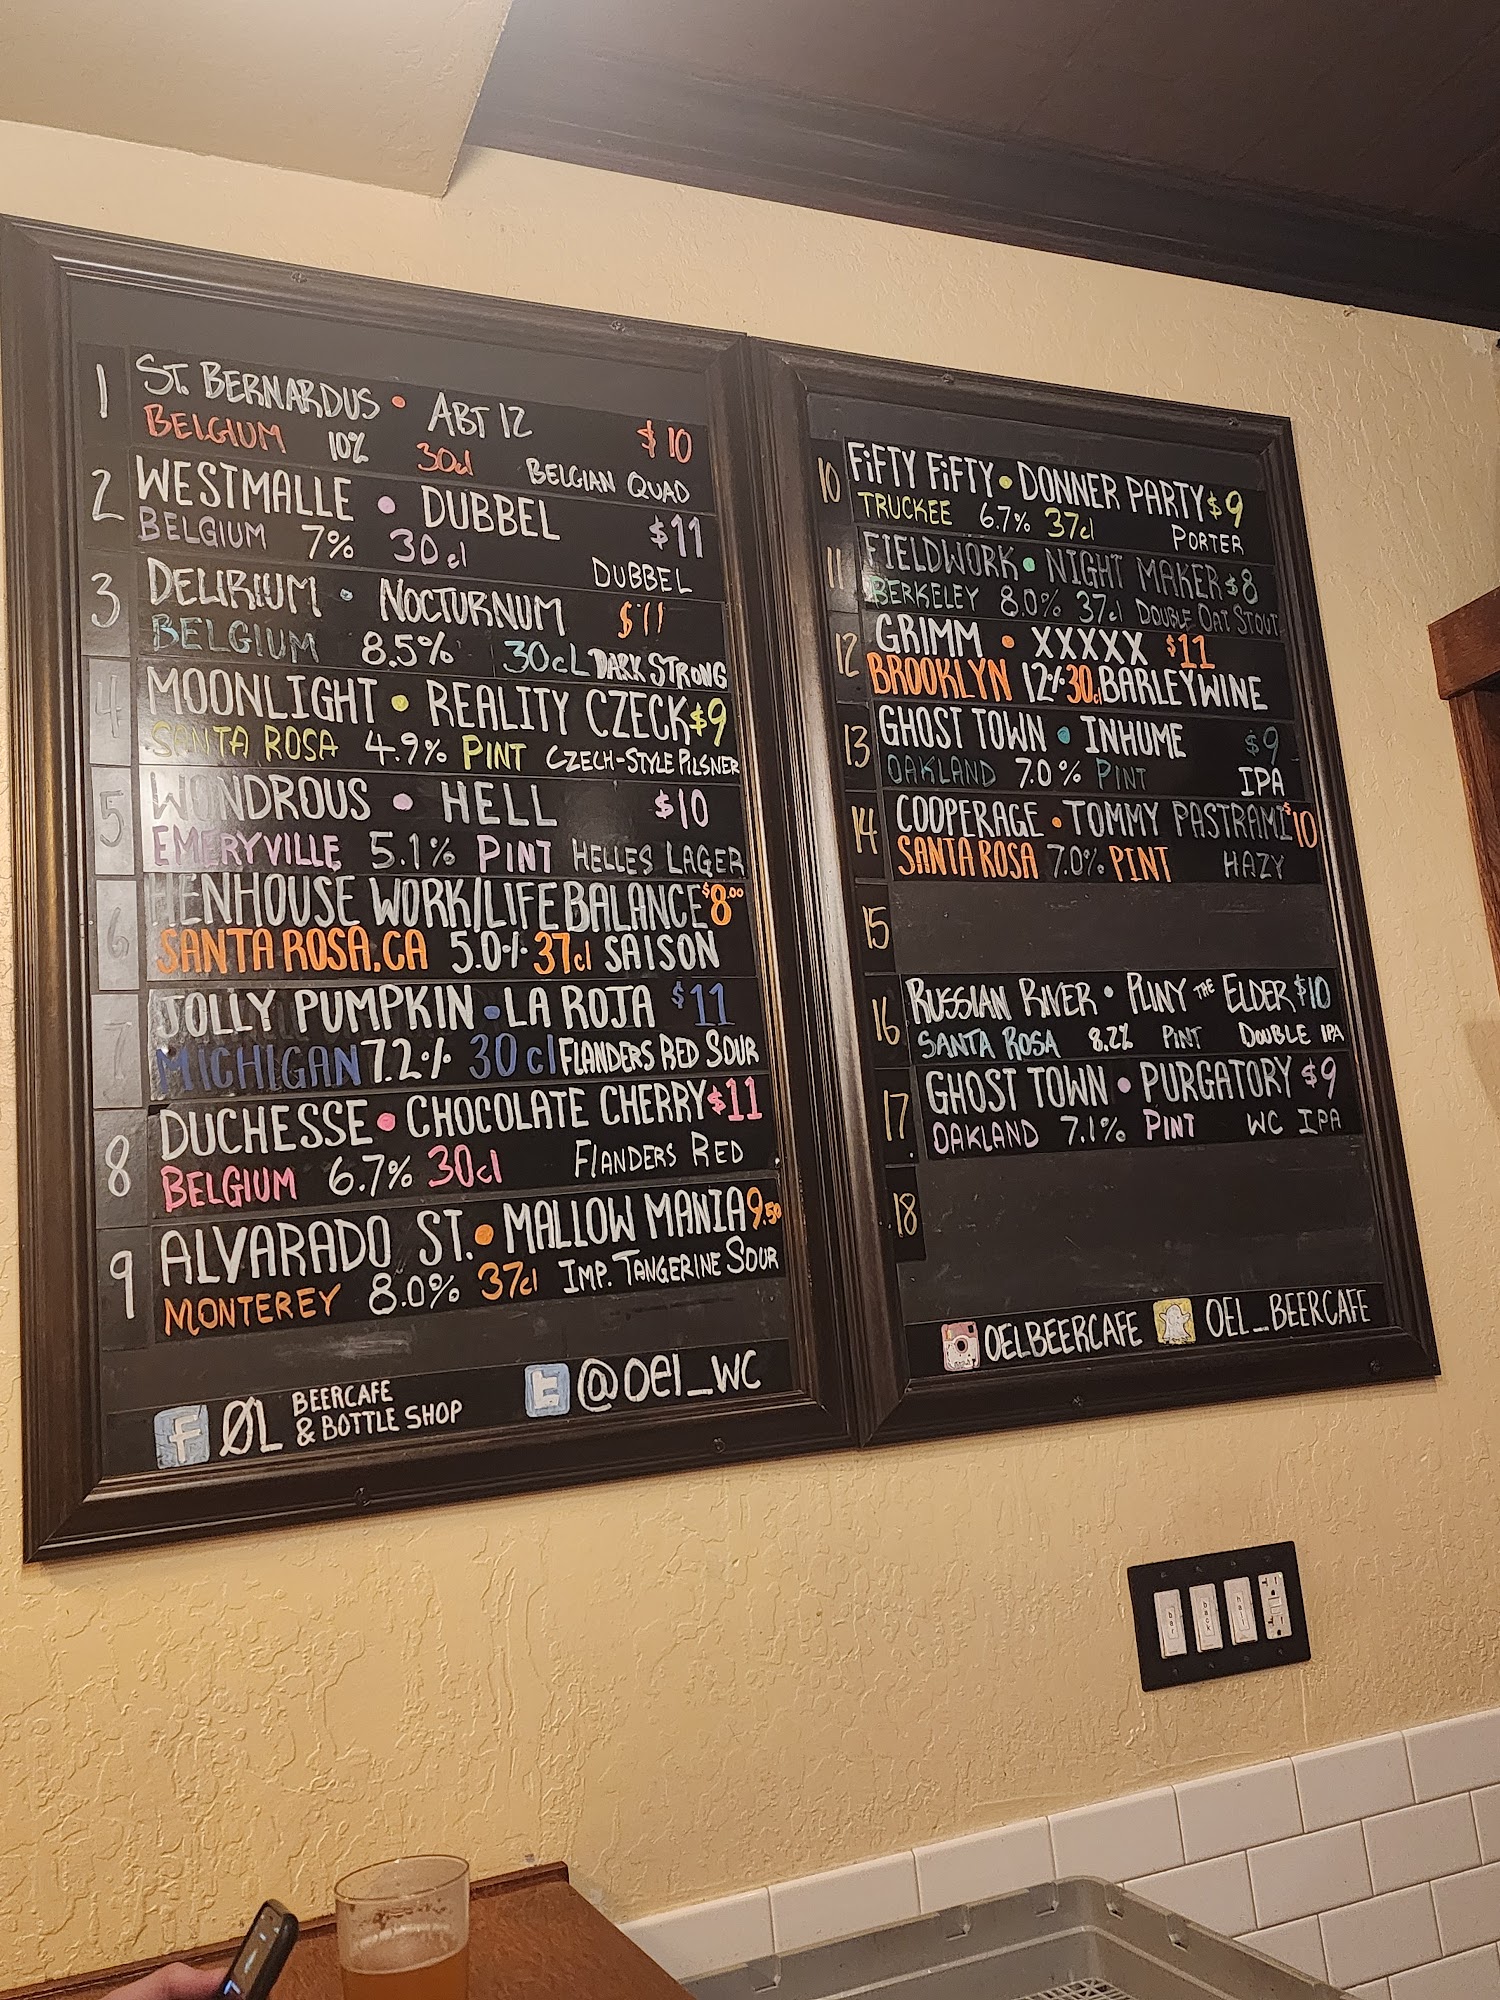 1 ST. BERNARDUS • ABT 12 $10
BELGIUM 10% 30cl BELGIAN QUAD
2 WESTMALLE • DUBBEL $11
BELGIUM 7% 30cl DUBBEL
3 DELIRIUM • NOCTURNUM $11
BELGIUM 8.5% 30cL DARK STRONG
4 MOONLIGHT • REALITY CZECK $9
SANTA ROSA 4.9% PINT CZECH-STYLE PILSNER
5 WONDROUS • HELL $10
EMERYVILLE 5.1% PINT HELLES LAGER
6 HENHOUSE WORK/LIFE BALANCE $8.00
SANTA ROSA, CA 5.0% 37cl SAISON
7 JOLLY PUMPKIN • LA ROJA $11
MICHIGAN 7.2% 30cl FLANDERS RED SOUR
8 DUCHESSE • CHOCOLATE CHERRY $11
BELGIUM 6.7% 30cl FLANDERS RED
9 ALVARADO ST. • MALLOW MANIA 9.50
MONTEREY 8.0% 37cl IMP. TANGERINE SOUR
f ØL BEERCAFE
& BOTTLE SHOP
t @oel_WC
10 FiFTY FiFTY • DONNER PARTY $9
TRUCKEE 6.7% 37cl PORTER
11 FIELDWORK • NIGHT MAKER $8
BERKELEY 8.0% 37cl DOUBLE OAT STOUT
12 GRIMM • XXXXX $11
BROOKLYN 12% 30cl BARLEYWINE
13 GHOST TOWN • INHUME $9
OAKLAND 7.0% PINT IPA
14 COOPERAGE • TOMMY PASTRAMI $10
SANTA ROSA 7.0% PINT HAZY
15
16 RUSSIAN RIVER • PLINY THE ELDER $10
SANTA ROSA 8.2% PINT DOUBLE IPA
17 GHOST TOWN • PURGATORY $9
OAKLAND 7.1% PINT WC IPA
18
OELBEERCAFE OEL_BEERCAFE
bar back hall